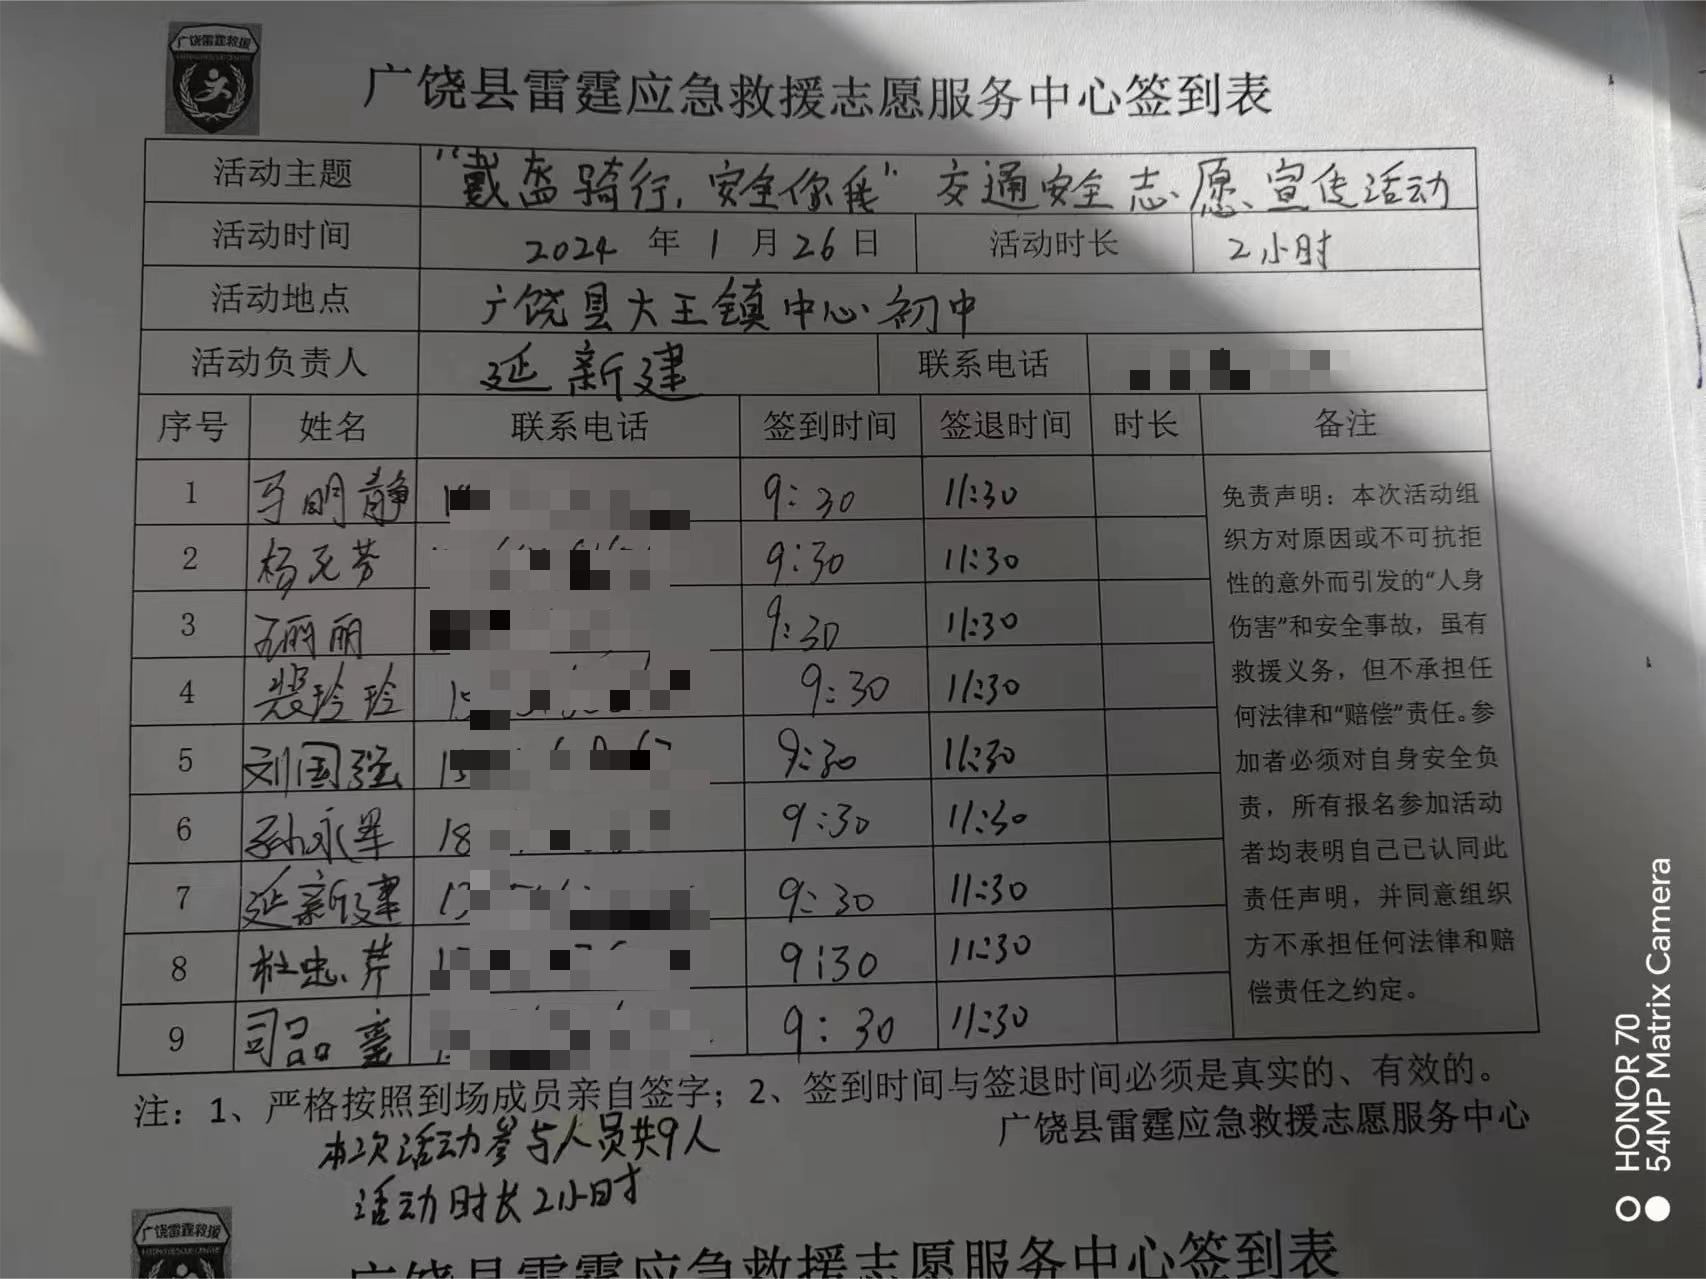 广饶雷霆救援
广饶县雷霆应急救援志愿服务中心签到表
活动主题 "戴盔骑行,安全你我"交通安全志愿宣传活动
活动时间 2024年1月26日 活动时长 2小时
活动地点 广饶县大王镇中心初中
活动负责人 延新建 联系电话
序号 姓名 联系电话 签到时间 签退时间 时长 备注
1 马明静 9:30 11:30
2 杨 芳 9:30 11:30
3 丽丽 9:30 11:30
4 裴玲玲 15 9:30 11:30
5 刘国强 15 9:30 11:30
6 孙永军 18 9:30 11:30
7 延新建 13 9:30 11:30
8 杜忠芹 9:30 11:30
9 司品 9:30 11:30
免责声明：本次活动组
织方对原因或不可抗拒
性的意外而引发的“人身
伤害”和安全事故，虽有
救援义务，但不承担任
何法律和“赔偿”责任。参
加者必须对自身安全负
责，所有报名参加活动
者均表明自己已认同此
责任声明，并同意组织
方不承担任何法律和赔
偿责任之约定。
注：1、严格按照到场成员亲自签字；2、签到时间与签退时间必须是真实的、有效的。
广饶县雷霆应急救援志愿服务中心
本次活动参与人员共9人
活动时长2小时
广饶雷霆救援
广饶县雷霆应急救援志愿服务中心签到表
HONOR 70
54MP Matrix Camera